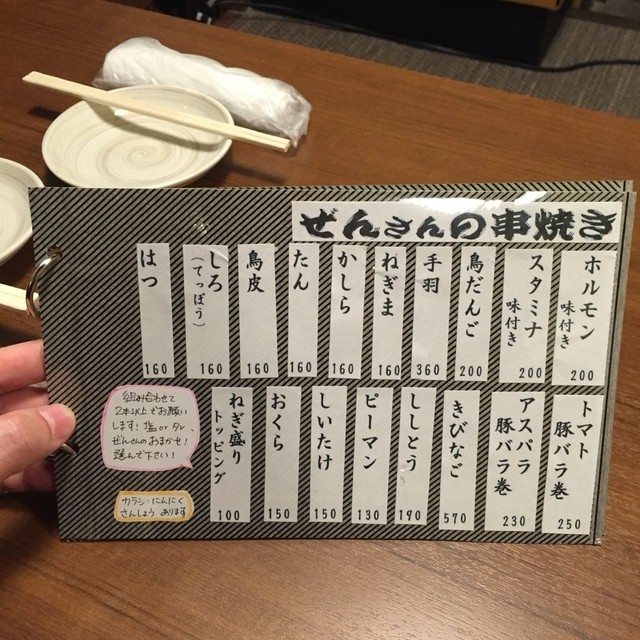 ぜんさんの串焼き
ホルモン
味付き
200
スタミナ
味付き
200
鳥だんご
200
手羽
360
ねぎま
160
かしら
160
たん
160
鳥皮
160
しろ
(てっぽう)
160
はつ
160
トマト
豚バラ巻
250
アスパラ
豚バラ巻
230
きびなご
570
ししとう
190
ピーマン
130
しいたけ
150
おくら
150
ねぎ盛り
トッピング
100
組み合わせて
2本以上でお願い
します!塩orタレ、
ぜんさんのおまかせ!
選んで下さい!
カラシ・にんにく
さんしょう あります